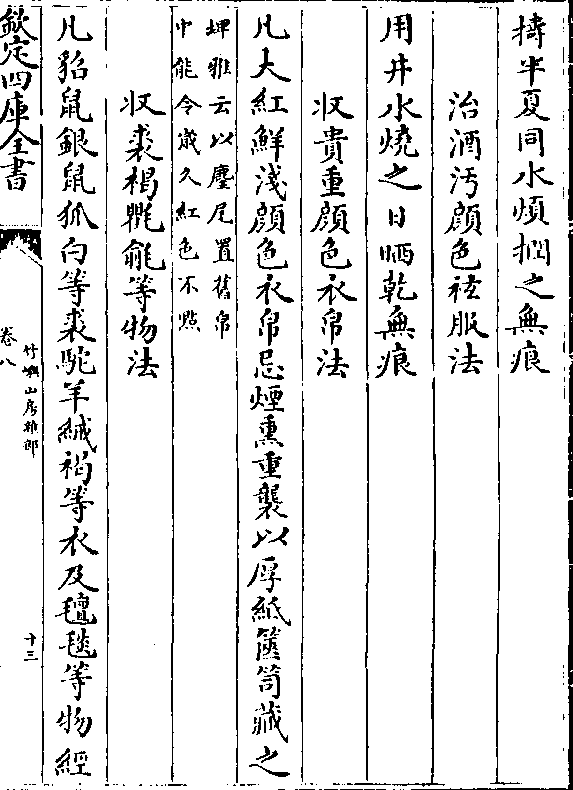 擣半夏同水煩捫之無痕
治酒汚顔色袨服法
用井水燒之日晒乾無痕
收貴重顔色衣帛法
凡大紅鮮淺顔色衣帛忌煙熏重襲以厚紙篋笥藏之
埤雅云以麈尾置舊帛
中能令歲久紅色不㸃
收裘褐氊毹等物法
凡貂鼠銀鼠狐白等裘駝羊絨褐等衣及氊毯等物經
欽定四庫全書
卷八
竹嶼山房雜部
十三